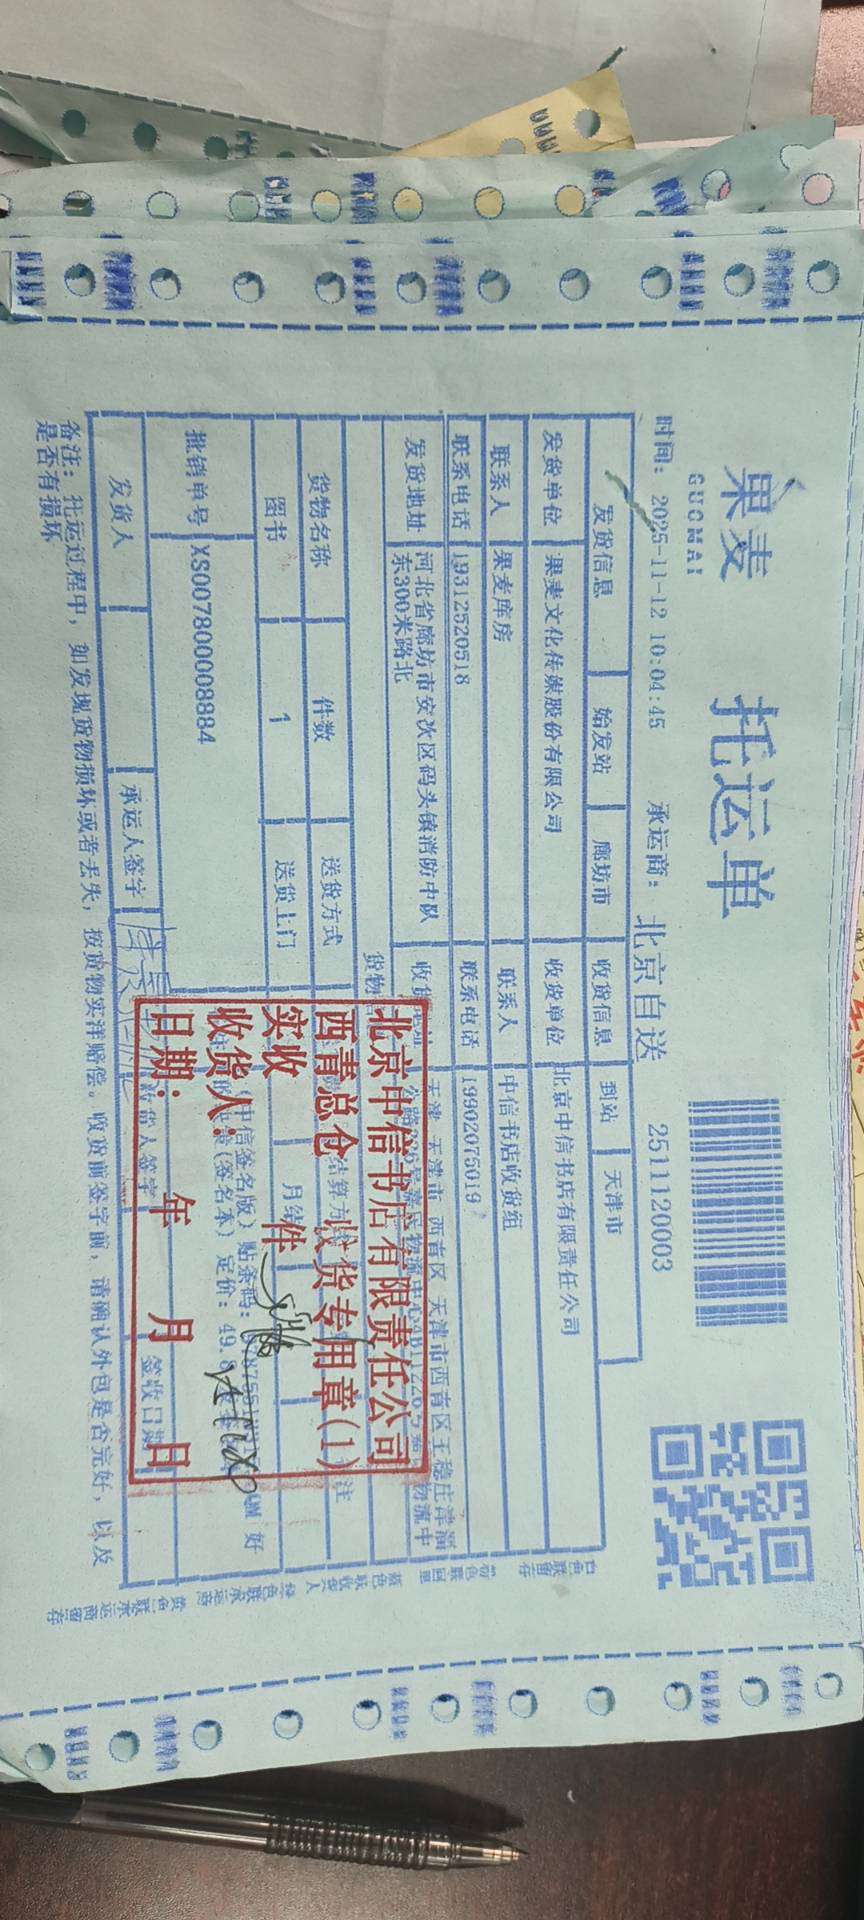 果麦
GUOMAI
托运单
时间: 2025-11-12 10:04:45 承运商: 北京自送 2511120003
发货信息 始发站 廊坊市 收货信息 到站 天津市
发货单位 果麦文化传媒股份有限公司 收货单位 北京中信书店有限责任公司
联系人 果麦库房 联系人 中信书店收货组
联系电话 19312520518 联系电话 19902075019
发货地址 河北省廊坊市安次区码头镇消防中队东300米路北
天津 天津市 西青区 天津市西青区王稳庄津淄
货物名称 件数 送货方式 结算方
图书 1 送货上门 月结
批销单号 XS007800008884
(中信签名版) 贴条码:
(签名本) 定价: 49.8
发货人 承运人签字 收货人签字 签收日期
备注: 托运过程中, 如发现货物损坏或者丢失, 按货物实洋赔偿。收货前签字前, 请确认外包是否完好, 以及
是否有损坏
北京中信书店有限责任公司
西青总仓 收货专用章(1)
实收 件
收货人:
日期: 年 月 日